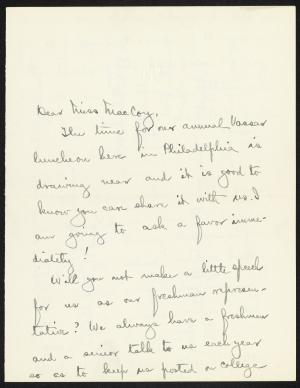 Dear Miss MacCoy,
The time for our annual Vassar
luncheon here in Philadelphia is
drawing near and it is good to
know you can share it with us. I
am going to ask a favor imme-
diately!
Will you not make a little speech
for us as our freshman represen-
tative? We always have a freshman
and a senior talk to us each year
so as to keep us posted on college